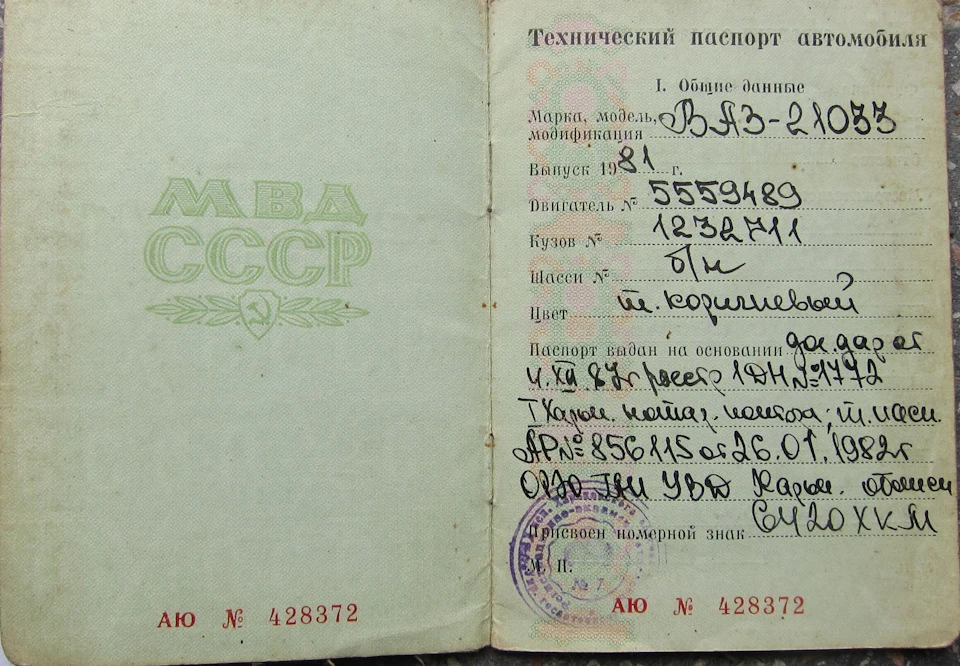 МВД
СССР
АЮ № 428372
Технический паспорт автомобиля
I. Общие данные
Марка, модель, ВАЗ-21033
модификация
Выпуск 1981 г.
Двигатель № 5559489
Кузов № 1232711
Шасси № б/н
Цвет т. коричневый
Паспорт выдан на основании дог. дар от
4. XII 87г реестр 1ДН №1772
I Харьк. нотар. контора; т. пасп.
АР № 856115 от 26.01.1982г
ГАИ УВД Харьк. области
Присвоен номерной знак 6420ХКМ
М. П.
№ 7
АЮ № 428372